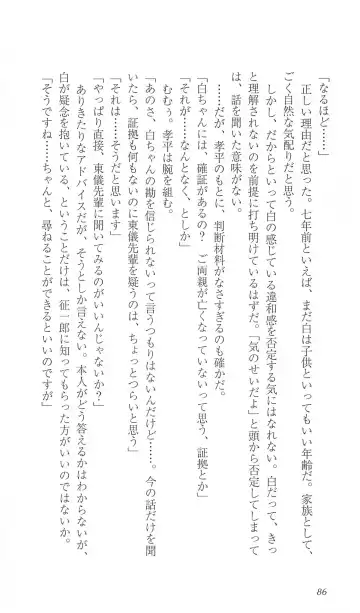 「なるほど……」
正しい理由だと思った。七年前といえば、まだ白は子供といってもいい年齢だ。家族として、
ごく自然な気配りだと思う。
しかし、だからといって白の感じている違和感を否定する気にはなれない。白だって、きっ
と理解されないのを前提に打ち明けているはずだ。「気のせいだよ」と頭から否定してしまって
は、話を聞いた意味がない。
……だが、孝平のもとに、判断材料がなさすぎるのも確かだ。
「白ちゃんには、確証があるの？　ご両親が亡くなっていないって思う、証拠とか」
「それが……なんとなく、としか」
むむぅ。孝平は腕を組む。
「あのさ、白ちゃんの勘を信じられないって言うつもりはないんだけど……。今の話だけを聞
いたら、証拠も何もないのに東儀先輩を疑うのは、ちょっとつらいと思う」
「それは……そうだと思います」
「やっぱり直接、東儀先輩に聞いてみるのがいいんじゃないか？」
ありきたりなアドバイスだが、そうとしか言えない。本人がどう答えるかはわからないが、
白が疑念を抱いている、ということだけは、征一郎に知ってもらった方がいいのではないか。
「そうですね……ちゃんと、尋ねることができるといいのですが」
86